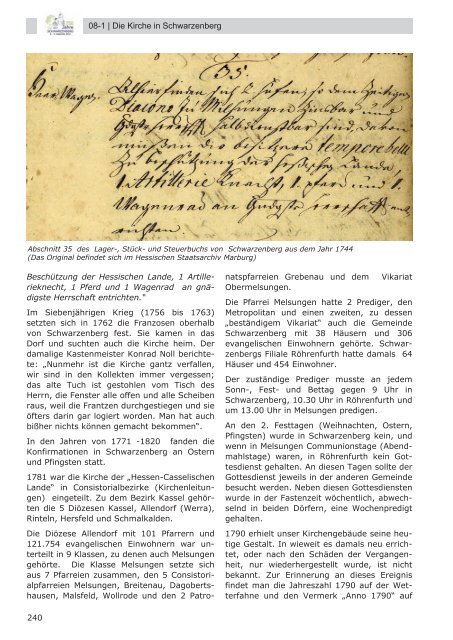 08-1 | Die Kirche in Schwarzenberg
35.
Heer Wagen.
Diacono zu Melsungen Zinsbar und
tempore belli
1. Artillerie Knecht, 1. pferd und 1.
Wagenrad an
Abschnitt 35 des Lager-, Stück- und Steuerbuchs von Schwarzenberg aus dem Jahr 1744
(Das Original befindet sich im Hessischen Staatsarchiv Marburg)
Beschützung der Hessischen Lande, 1 Artille-
rieknecht, 1 Pferd und 1 Wagenrad an gnä-
digste Herrschaft entrichten.“
Im Siebenjährigen Krieg (1756 bis 1763)
setzten sich in 1762 die Franzosen oberhalb
von Schwarzenberg fest. Sie kamen in das
Dorf und suchten auch die Kirche heim. Der
damalige Kastenmeister Konrad Noll berichte-
te: „Nunmehr ist die Kirche gantz verfallen,
wir sind in den Kollekten immer vergessen;
das alte Tuch ist gestohlen vom Tisch des
Herrn, die Fenster alle offen und alle Scheiben
raus, weil die Frantzen durchgestiegen und sie
öfters darin gar logiert worden. Man hat auch
bißher nichts können gemacht bekommen“.
In den Jahren von 1771 -1820 fanden die
Konfirmationen in Schwarzenberg an Ostern
und Pfingsten statt.
1781 war die Kirche der „Hessen-Casselischen
Lande“ in Consistorialbezirke (Kirchenleitun-
gen) eingeteilt. Zu dem Bezirk Kassel gehör-
ten die 5 Diözesen Kassel, Allendorf (Werra),
Rinteln, Hersfeld und Schmalkalden.
Die Diözese Allendorf mit 101 Pfarrern und
121.754 evangelischen Einwohnern war un-
terteilt in 9 Klassen, zu denen auch Melsungen
gehörte. Die Klasse Melsungen setzte sich
aus 7 Pfarreien zusammen, den 5 Consistori-
alpfarreien Melsungen, Breitenau, Dagoberts-
hausen, Malsfeld, Wollrode und den 2 Patro-
natspfarreien Grebenau und dem Vikariat
Obermelsungen.
Die Pfarrei Melsungen hatte 2 Prediger, den
Metropolitan und einen zweiten, zu dessen
„beständigem Vikariat“ auch die Gemeinde
Schwarzenberg mit 38 Häusern und 306
evangelischen Einwohnern gehörte. Schwar-
zenbergs Filiale Röhrenfurth hatte damals 64
Häuser und 454 Einwohner.
Der zuständige Prediger musste an jedem
Sonn-, Fest- und Bettag gegen 9 Uhr in
Schwarzenberg, 10.30 Uhr in Röhrenfurth und
um 13.00 Uhr in Melsungen predigen.
An den 2. Festtagen (Weihnachten, Ostern,
Pfingsten) wurde in Schwarzenberg kein, und
wenn in Melsungen Communionstage (Abend-
mahlstage) waren, in Röhrenfurth kein Got-
tesdienst gehalten. An diesen Tagen sollte der
Gottesdienst jeweils in der anderen Gemeinde
besucht werden. Neben diesen Gottesdiensten
wurde in der Fastenzeit wöchentlich, abwech-
selnd in beiden Dörfern, eine Wochenpredigt
gehalten.
1790 erhielt unser Kirchengebäude seine heu-
tige Gestalt. In wieweit es damals neu errich-
tet, oder nach den Schäden der Vergangen-
heit, nur wiederhergestellt wurde, ist nicht
bekannt. Zur Erinnerung an dieses Ereignis
findet man die Jahreszahl 1790 auf der Wet-
terfahne und den Vermerk „Anno 1790“ auf
240